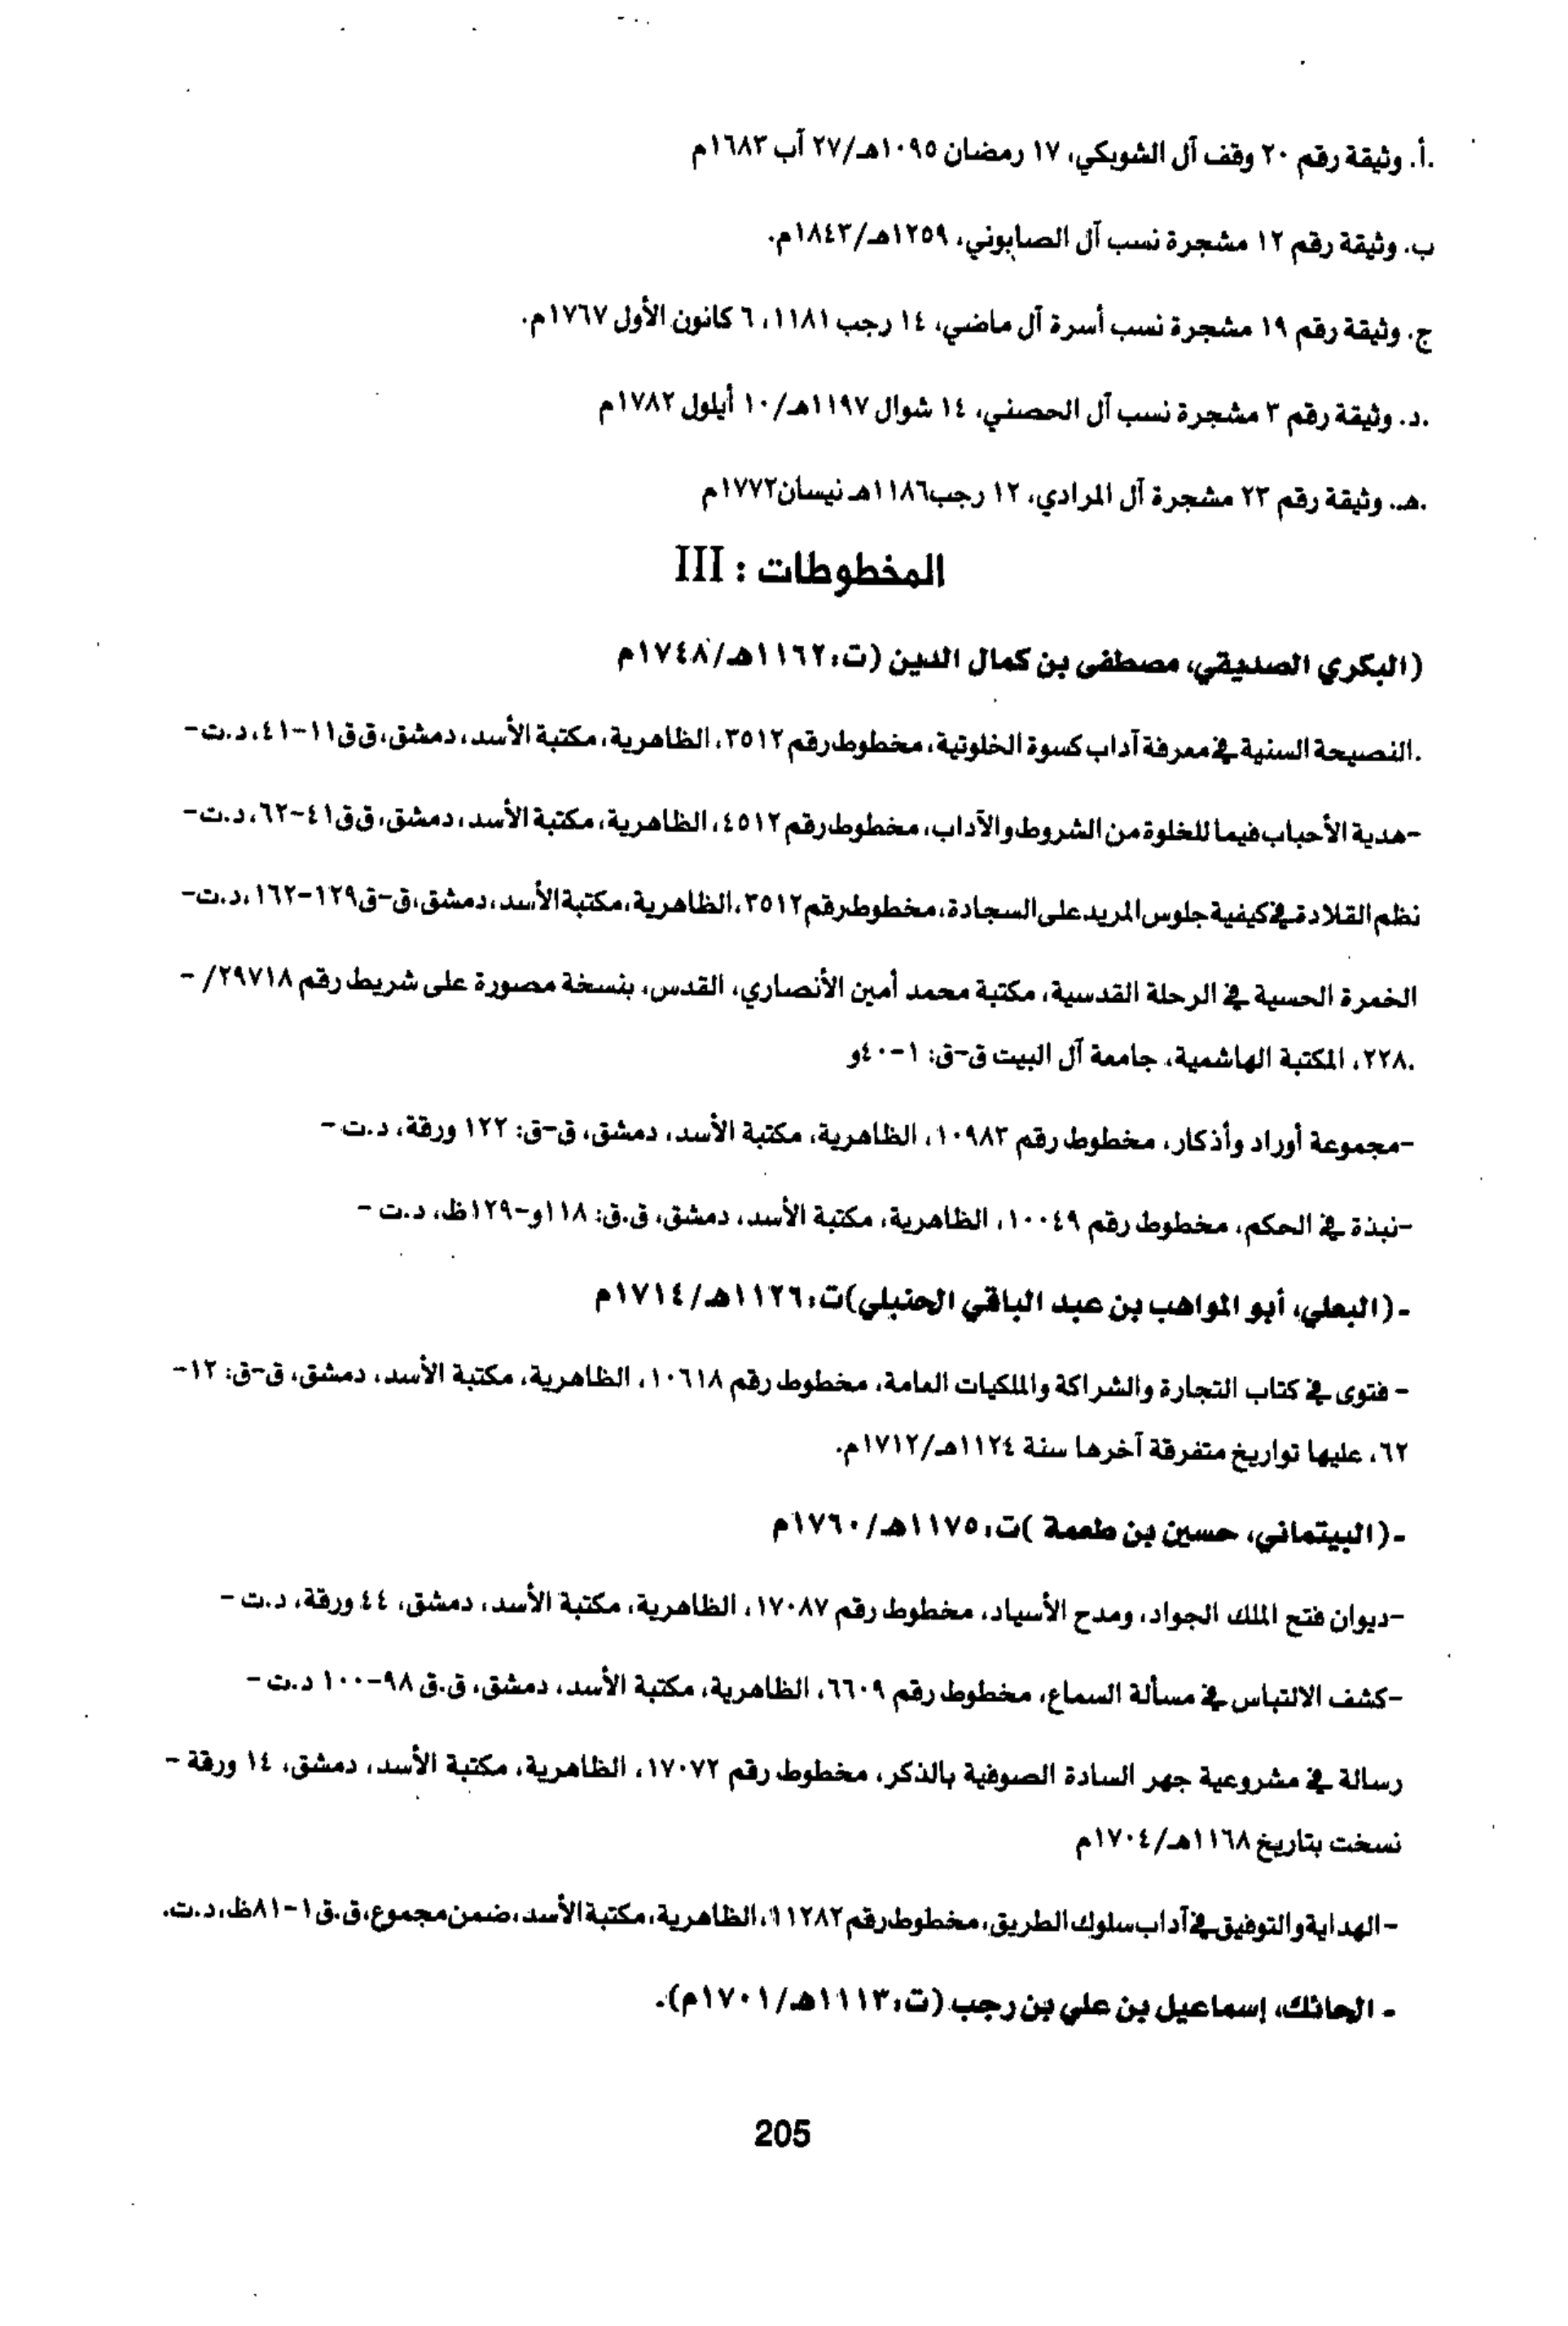 .أ. وثيقة رقم ٢٠ وقف آل الشويكي، ١٧ رمضان ١٠٩٥هـ/٢٧ آب ١٦٨٣م
ب. وثيقة رقم ١٢ مشجرة نسب آل الصابوني، ١٢٥٩هـ/١٨٤٣م.
ج. وثيقة رقم ١٩ مشجرة نسب أسرة آل ماضي، ١٤ رجب ١١٨١، ٦ كانون الأول ١٧٦٧م.
.د. وثيقة رقم ٣ مشجرة نسب آل الحصني، ١٤ شوال ١١٩٧هـ/١٠ أيلول ١٧٨٢م
.هـ. وثيقة رقم ٢٣ مشجرة آل المرادي، ١٢ رجب١١٨٦هـ نيسان١٧٧٢م
المخطوطات : III
(البكري الصديقي، مصطفى بن كمال الدين (ت:١١٦٢هـ/١٧٤٨م
.النصيحة السنية في معرفة آداب كسوة الخلوتية، مخطوط رقم ٣٥١٢، الظاهرية، مكتبة الأسد، دمشق، ق ق١١-٤١، د.ت-
-هدية الأحباب فيما للخلوة من الشروط والآداب، مخطوط رقم ٤٥١٢، الظاهرية، مكتبة الأسد، دمشق، ق ق٤١-٦٢، د.ت-
نظم القلادة في كيفية جلوس المريد على السجادة، مخطوط رقم ٣٥١٢، الظاهرية، مكتبة الأسد، دمشق، ق-ق١٢٩-١٦٢، د.ت-
الخمرة الحسية في الرحلة القدسية، مكتبة محمد أمين الأنصاري، القدس، بنسخة مصورة على شريط رقم ٢٩٧١٨/ -
.٢٢٨، المكتبة الهاشمية، جامعة آل البيت ق-ق: ١-٤٠و
-مجموعة أوراد وأذكار، مخطوط رقم ١٠٩٨٣، الظاهرية، مكتبة الأسد، دمشق، ق-ق: ١٢٢ ورقة، د.ت -
-نبذة في الحكم، مخطوط رقم ١٠٠٤٩، الظاهرية، مكتبة الأسد، دمشق، ق.ق: ١١٨و-١٢٩ظ، د.ت -
- (البعلي، أبو المواهب بن عبد الباقي الحنبلي)ت:١١٢٦هـ/١٧١٤م
- فتوى في كتاب التجارة والشراكة والملكيات العامة، مخطوط رقم ١٠٦١٨، الظاهرية، مكتبة الأسد، دمشق، ق-ق: ١٢-
٦٢، عليها تواريخ متفرقة آخرها سنة ١١٢٤هـ/١٧١٢م.
- (البيتماني، حسين بن طعمة )ت: ١١٧٥هـ/١٧٦٠م
-ديوان فتح الملك الجواد، ومدح الأسياد، مخطوط رقم ١٧٠٨٧، الظاهرية، مكتبة الأسد، دمشق، ٤٤ ورقة، د.ت -
-كشف الالتباس في مسألة السماع، مخطوط رقم ٦٦٠٩، الظاهرية، مكتبة الأسد، دمشق، ق.ق ٩٨-١٠٠ د.ت -
رسالة في مشروعية جهر السادة الصوفية بالذكر، مخطوط رقم ١٧٠٧٢، الظاهرية، مكتبة الأسد، دمشق، ١٤ ورقة -
نسخت بتاريخ ١١٦٨هـ/١٧٠٤م
- الهداية والتوفيق في آداب سلوك الطريق، مخطوط رقم ١١٢٨٢، الظاهرية، مكتبة الأسد، ضمن مجموع، ق.ق ١-٨١ظ، د.ت.
- الحائك، إسماعيل بن علي بن رجب (ت:١١١٣هـ/١٧٠١م).
205